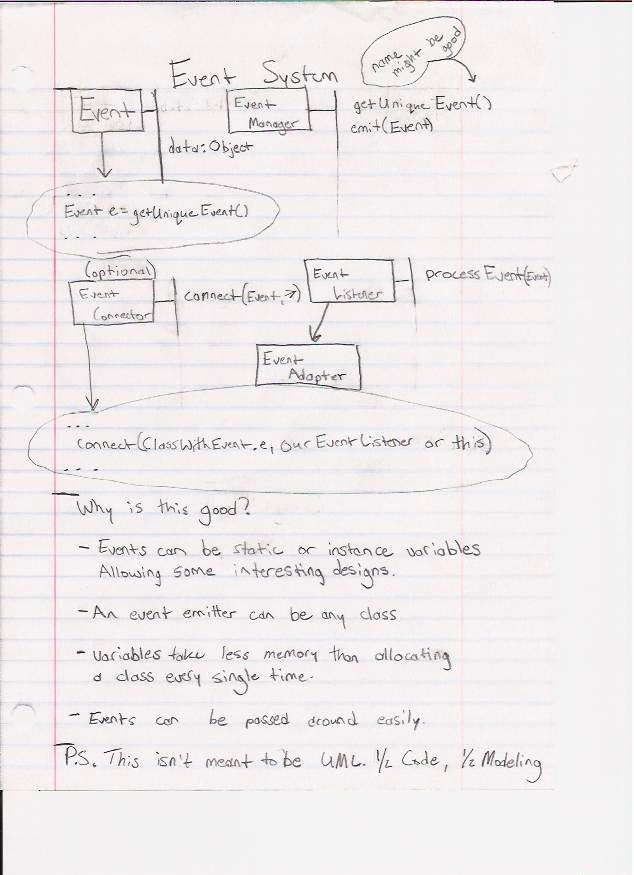 name
might be
good
Event System
Event
data: Object
Event
Manager
getUnique Event()
emit(Event)
...
Event e = getUnique Event()
...
(optional)
Event
Connector
connect(Event, →)
Event
Listener
process Event(Event)
Event
Adapter
...
connect(ClassWithEvent.e, Our Event Listener or this)
...
Why is this good?
- Events can be static or instance variables
Allowing some interesting designs.
- An event emitter can be any class
- Variables take less memory than allocating
a class every single time.
- Events can be passed around easily.
P.S. This isn't meant to be UML. 1/2 Code, 1/2 Modeling